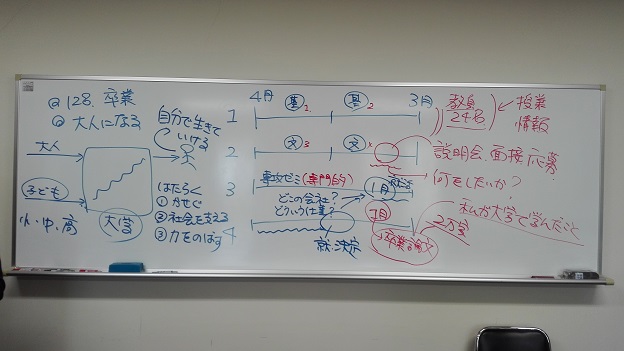 @128. 卒業
@ 大人になる
大人
子ども
小、中、高
大学
自分で生きて
いける
はたらく
① かせぐ
② 社会を支える
③ 力をのばす
4月
3月
1
基 2
基 2
2
文 3
文
3
専攻ゼミ(専門的)
どこの会社?
どういう仕事?
1月
4
就決定
1月
卒業論文
2万字
教員
24名
授業
情報
説明会、面接、応募
何をしたいか?
私が大学で学んだこと